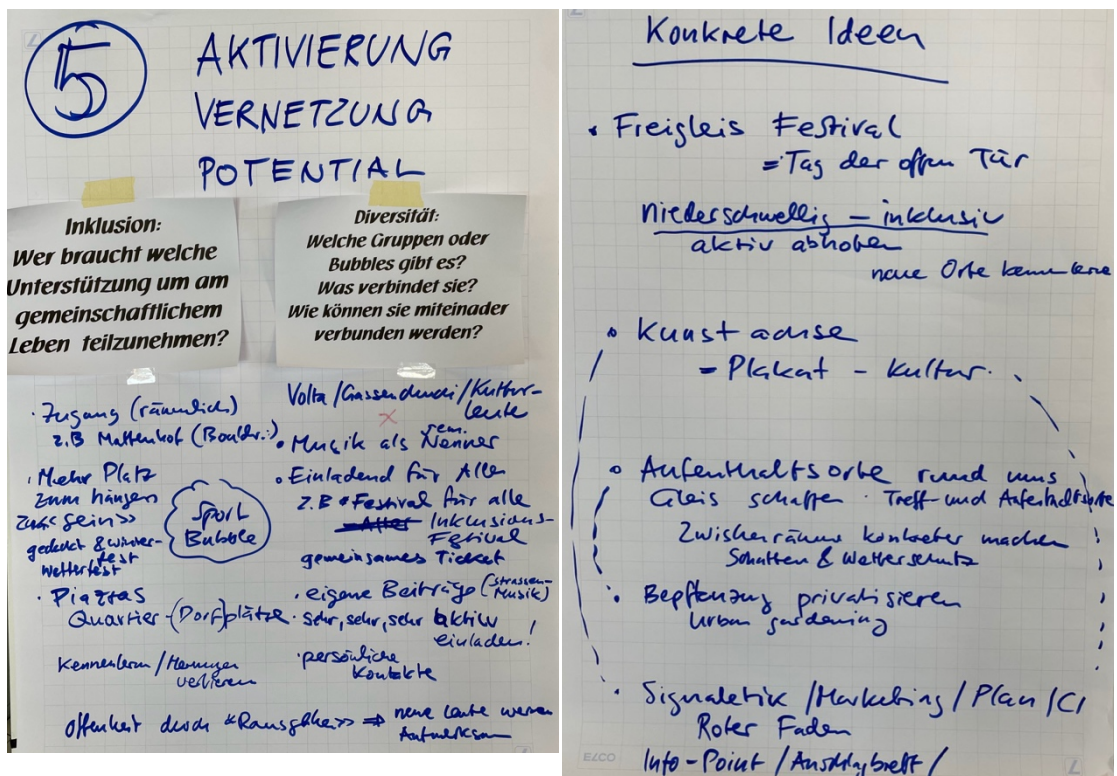 5
AKTIVIERUNG
VERNETZUNG
POTENTIAL
Inklusion:
Wer braucht welche
Unterstützung um am
gemeinschaftlichem
Leben teilzunehmen?
Diversität:
Welche Gruppen oder
Bubbles gibt es?
Was verbindet sie?
Wie können sie miteinader
verbunden werden?
· Zugang (räumlich)
z.B Mattenhof
· Mehr Platz
zum hängen
zu «sein»
gedeckt & winter-
fest
wetterfest
Sport
Bubble
· Piazzas
Quartier-(Dorf)plätze
Kennenlernen / Hemungen
verlieren
Volta / Gassenchuchi / Kultur-
leute
· Musik als Nenner
gem.
· Einladend für Alle
z.B * Festival für alle
Inklusions-
Festival
gemeinsames Ticket
· eigene Beiträge (Strassen-
Musik)
· sehr, sehr, sehr aktiv
einladen!
· persönliche
Kontakte
Offenheit durch «Rausgehen» ⇒ neue Leute werden
Aufmerksam
Konkrete Ideen
· Freigleis Festival
= Tag der offen Tür
niederschwellig – inklusiv
aktiv abholen
neue Orte kennenlerne
· Kunstachse
= Plakat – Kultur
· Aufenthaltsorte rund ums
Gleis schaffen · Treff- und Aufenthaltsorte
Zwischenräume konkreter machen
Schatten & Wetterschutz
· Bepflanzung privatisieren
Urban gardening
· Signaletik / Marketing / Plan / CI
Roter Faden
Info-Point / Anschlagbrett /
ELCO